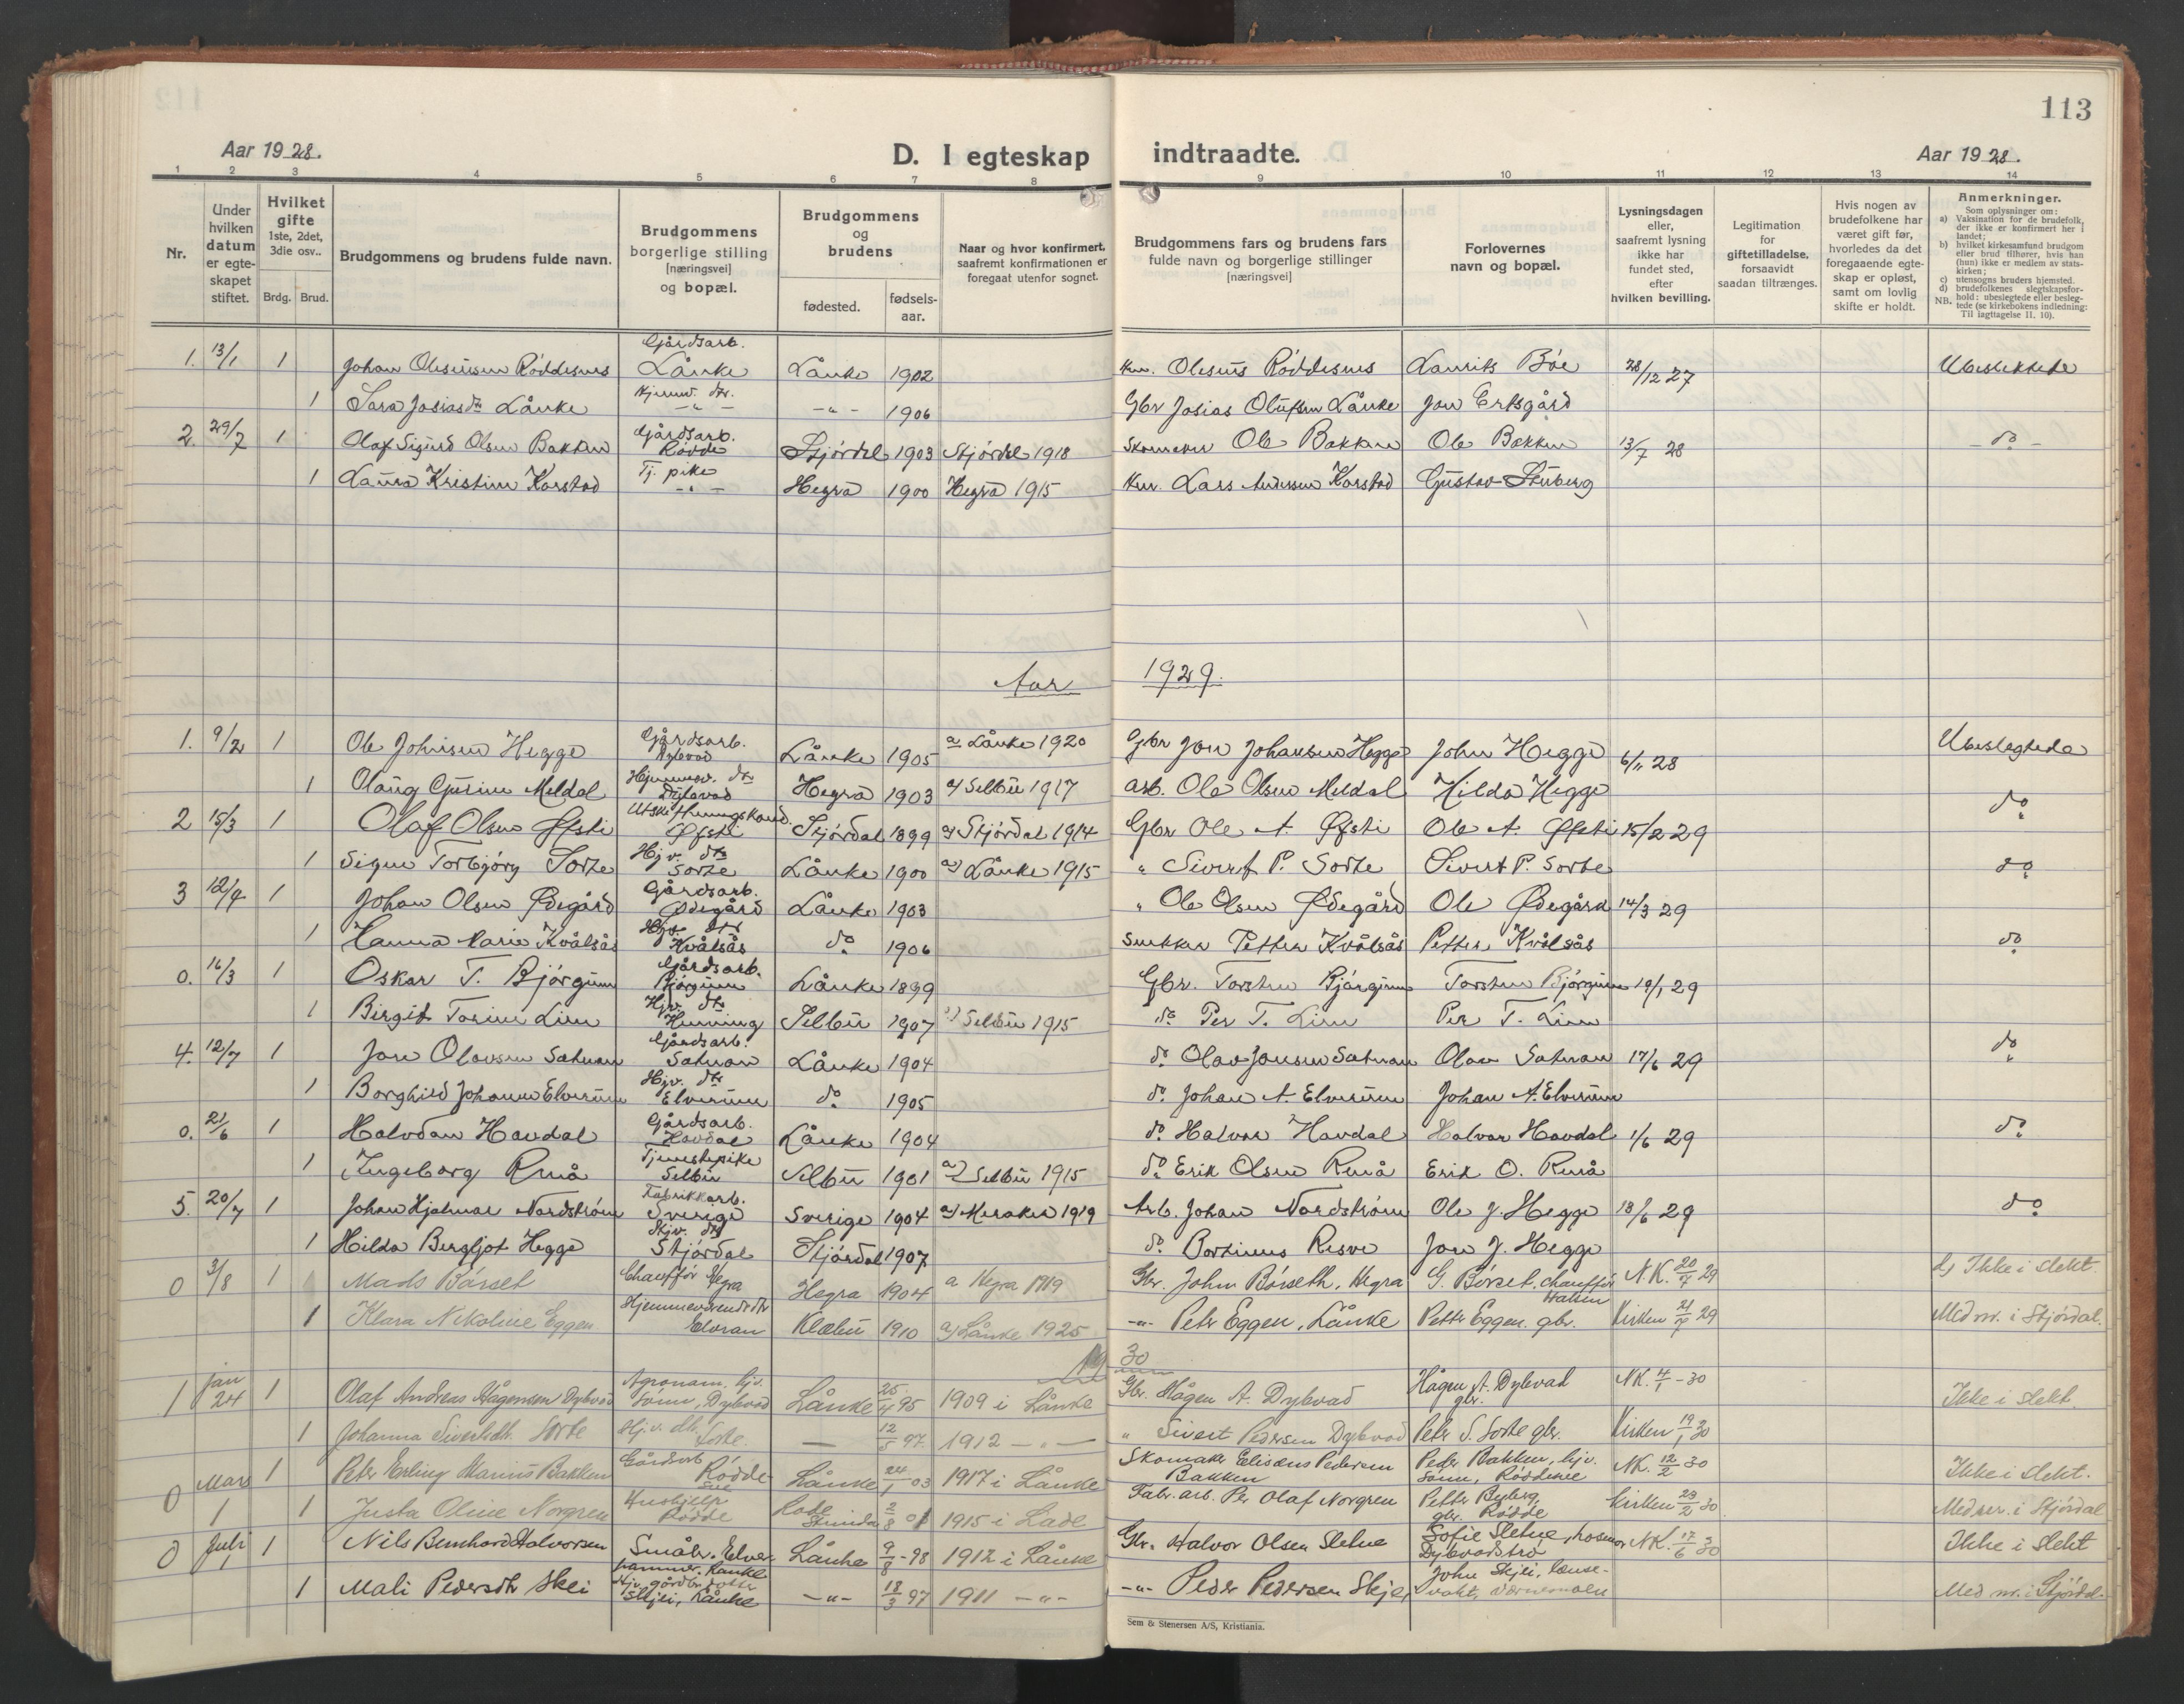 113
Aar 1928.
D. I egteskap indtraadte.
Aar 1928.
1 2 3 4 5 6 7 8 9 10 11 12 13 14
Nr.
Under hvilken datum er egteskapet stiftet.
Hvilket gifte 1ste, 2det, 3die osv..
Brdg. Brud.
Brudgommens og brudens fulde navn.
Brudgommens borgerlige stilling [næringsvei] og bopæl.
Brudgommens og brudens
fødested.
fødsels-aar.
Naar og hvor konfirmert, saafremt konfirmationen er foregaat utenfor sognet.
Brudgommens fars og brudens fars fulde navn og borgerlige stillinger [næringsvei]
Forlovernes navn og bopæl.
Lysningsdagen eller, saafremt lysning ikke har fundet sted, efter hvilken bevilling.
Legitimation for giftetilladelse, forsaavidt saadan tiltrænges.
Hvis nogen av brudefolkene har været gift før, hvorledes da det foregaaende egteskap er opløst, samt om lovlig skifte er holdt.
Anmerkninger.
Som oplysninger om:
a) Vaksination for de brudefolk, der ikke er konfirmert her i landet;
b) hvilket kirkesamfund brudgom eller brud tilhører, hvis han (hun) ikke er medlem av statskirken;
c) utensogns bruders hjemsted.
d) brudefolkenes slegtskapsforhold: ubeslegtede eller beslegtede (se kirkebokens indledning:
NB. Til iagttagelse II. 10).
1. 13/1 1 Johan Olesusen Røddesnes Gårdsarb. Lånke Lånke 1902 Olesus Røddesnes Laurits Bøe 28/12 27 Ubeslektede
1 Sara Josiasdtr Lånke Hjemv. dtr. -"- -"- 1906 Gbr Josias Olufsen Lånke Jon Ertsgård
2. 29/7 1 Olaf Sigurd Olsen Bakken Gårdsarb. Rødde Stjørdal 1903 Stjørdal 1918 Skomaker Ole Bakken Ole Bakken 13/7 28 - do -
1 Laura Kristine Karstad Tj. pike -"- Hegra 1900 Hegra 1915 Lars Andersen Karstad Gustav Stuberg
Aar 1929.
1. 9/2 1 Ole Johnsen Hegge Gårdsarb. Dybvad Lånke 1905 a Lånke 1920 Gbr Jon Johansen Hegge John Hegge 6/11 28 Ubeslegtede
1 Olaug Gurine Meldal Hjemmev. dtr Dybvad Hegra 1903 a) Selbu 1917 Arb. Ole Olsen Meldal Hilda Hegge
2 15/3 1 Olaf Olsen Øfsti Utskiftningskand. Øfsti Stjørdal 1899 a) Stjørdal 1914 Gbr Ole A. Øfsti Ole A. Øfsti 15/2 29 do
1 Signe Torbjørg Sorte Hjv. dtr Sorte Lånke 1900 a) Lånke 1915 " Sivert P. Sorte Sivert P. Sorte do
3 12/4 1 Johan Olsen Ødegård Gårdsarb. Ødegård Lånke 1903 " Ole Olsen Ødegård Ole Ødegård 14/3 29
1 Hanna Marie Kvålsås Hjv. dtr Kvålsås do 1906 Snekker Petter Kvålsås Petter Kvålsås do
0. 16/3 1 Oskar T. Bjørgum Gårdsarb. Bjørgum Lånke 1899 Gbr. Torsten Bjørgum Torsten Bjørgum 19/1 29
1 Birgit Torine Lien Hjv. dtr Selbu 1907 a) Selbu 1915 do Per T. Lien Per T. Lien
4. 12/7 1 Jon Olavsen Sætnan Gårdsarb. Sætnan Lånke 1904 do Olav Jonsen Sætnan Olav Sætnan 17/6 29 do
1 Borghild Johanne Elverum Hjv. dtr Elverum do 1905 do Johan A. Elverum Johan A. Elverum
0. 21/6 1 Halvdan Havdal Gårdsarb. Havdal Lånke 1904 do Halvor Havdal Halvor Havdal 1/6 29 do
1 Ingeborg Renå Tjenestepike Selbu Selbu 1901 a) Selbu 1915 do Erik Olsen Renå Erik O. Renå
5. 20/7 1 Johan Hjalmar Nordstrøm Fabrikkarb. Sverige Sverige 1904 a) Meraker 1919 Arb. Johan Nordstrøm Ole J. Hegge 18/6 29 do
1 Hilda Bergljot Hegge Hjv. dtr Stjørdal Stjørdal 1907 do Bortinus Resve Jon J. Hegge
0 3/8 1 Mads Børset Chauffør Hegra Hegra 1904 a Hegra 1919 Gbr. John Børseth, Hegra G. Børset, chauffør Halsen N.K. 20/7 29 d) Ikke i slekt.
1 Klara Nikoline Eggen Hjemmeværende dtr Elvran Klæbu 1910 a) Lånke 1925 -"- Peter Eggen, Lånke Petter Eggen. gbr. Kirken 21/7 29 Med nr. i Stjørdal.
1930
1 Jan 24 1 Olaf Andreas Hågensen Dybvad Agronom, hjv. sønn, Dybvad Lånke 25/4 95 1909 i Lånke Gbr. Hågen A. Dybvad Hågen A. Dybvad gbr. NK. 4/1 - 30 Ikke i slekt.
1 Johanna Sivertsdtr. Sorte Hj.v. dtr. Sorte. — 12/5 97 1912 -"- " Sivert Pedersen Dybvad Peter S. Sorte gbr. Kirken 19/1 30
0 Mars 1 1 Peter Erling Marius Bakken Gårdsarb Rødde Lånke 24/1 03 1917 i Lånke Skomaker Eliseus Pedersen Bakken Peder Bakken, hjv. sønn, NK. 12/2 30 Ikke i slekt.
1 Justa Oline Norgren Hushjelp Rødde Lade Strinda 2/8 01 1915 i Lade Fabr. arb. Per Olaf Norgren Petter gbr. Rødde Kirken 23/2 30 Med nr. i Stjørdal
0 Juli 1 1 Nils Bernhard Halvorsen Småbr. Elver Lånke 9/8 - 98 1912 i Lånke Gbr. Halvor Olsen Sletne Sofie Sletne, Dybvadstrø NK. 17/6 30 Ikke i slekt
1 Mali Pedersdtr Skei Hjv. gårdbr. datter Skjei, Lånke -"- 18/3 97 1911 -"- -"- Peder Pedersen Skjei John Skjei, vakt, Værnesmoen Med nr. i Stjørdal.
Sem & Stenersen A/S, Kristiania.